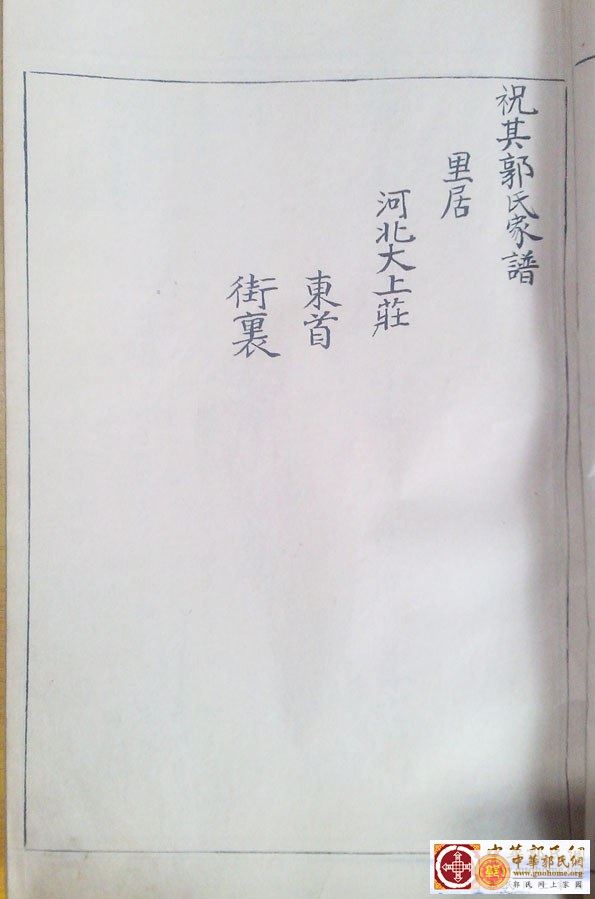 祝其郭氏家譜
里居
河北大上莊
東首
街裏
中華郭氏網
www.guohome.org
郭氏网上家園